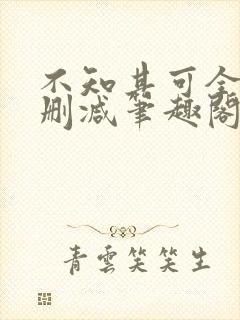 不知其可全
删减笔趣阁
青雲笑笑生